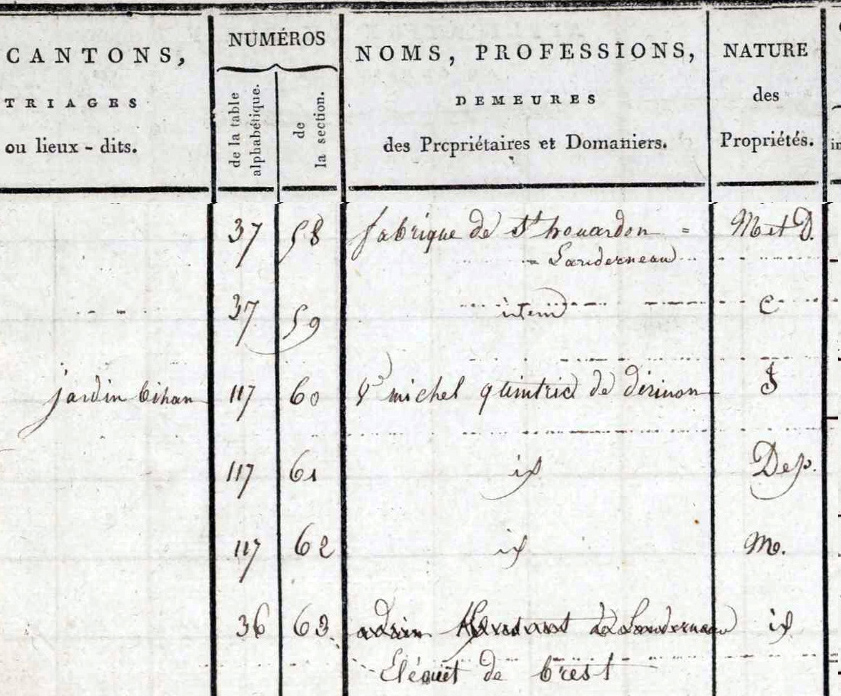 CANTONS,
TRIAGES
ou lieux - dits.
NUMÉROS
de la table
alphabétique.
de
la section.
NOMS, PROFESSIONS,
DEMEURES
des Propriétaires et Domaniers.
NATURE
des
Propriétés.
37 58 fabrique de St houardon = M et D.
= Landerneau
37 59 item C
jardin bihan 117 60 michel quintric de dirinon J
117 61 id Dép.
117 62 id M.
36 63. de Landerneau id
Eléouet de brest